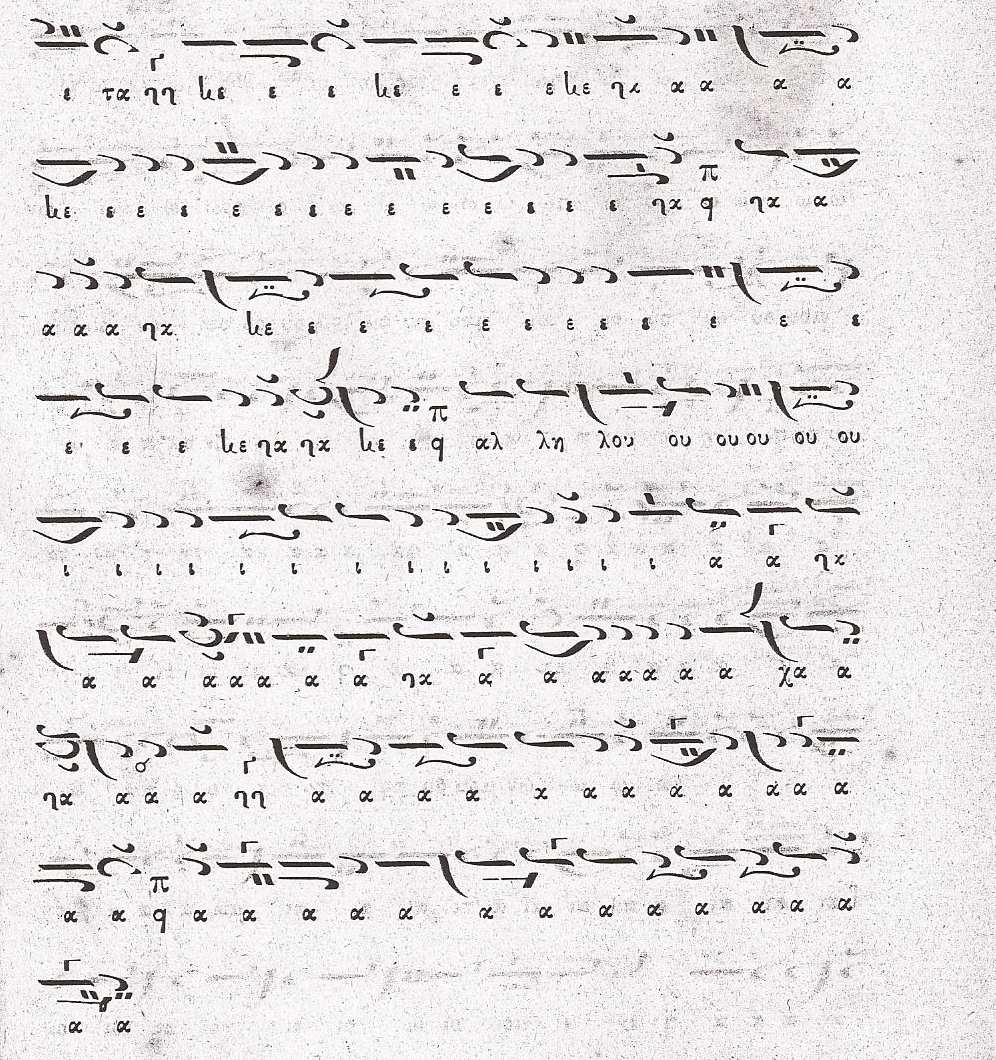 ε τα ηη κε ε ε κε ε ε ε κε ηχ α α α α
κε ε ε ε ε ε ε ε ε ε ε ε ε ε ηχ π q ηχ α
α α α ηχ κε ε ε ε ε ε ε ε ε ε ε ε
ε ε ε κε ηχ ηχ κε ε π q αλ λη λου ου ου ου ου ου
ι ι ι ι ι ι ι ι ι ι ι ι ι ι ι α α ηχ
α α α α α α α ηχ α α α α α α α χα α
ηχ α α α ηη α α α α χ α α α α α α α
α α π q α α α α α α α α α α α α α
α α